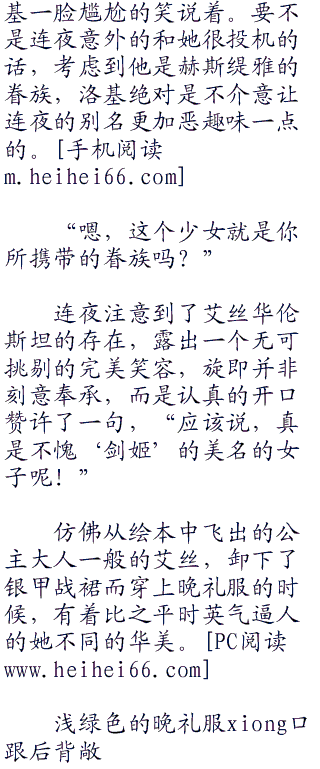 基一脸尴尬的笑说着。要不
是连夜意外的和她很投机的
话，考虑到他是赫斯缇雅的
眷族，洛基绝对是不介意让
连夜的别名更加恶趣味一点
的。[手机阅读
m.heihei66.com]
“嗯，这个少女就是你
所携带的眷族吗？”
连夜注意到了艾丝华伦
斯坦的存在，露出一个无可
挑剔的完美笑容，旋即并非
刻意奉承，而是认真的开口
赞许了一句，“应该说，真
是不愧‘剑姬’的美名的女
子呢！”
仿佛从绘本中飞出的公
主大人一般的艾丝，卸下了
银甲战裙而穿上晚礼服的时
候，有着比之平时英气逼人
的她不同的华美。[PC阅读
www.heihei66.com]
浅绿色的晚礼服xiong口
跟后背敞